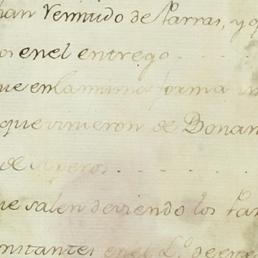 han Vermudo de Parras, y q
os en el entrego
ue en la misma forma
que vinieron de Bonan
de viveros
ue salen deviendo los Par
mitantes en el L.º de